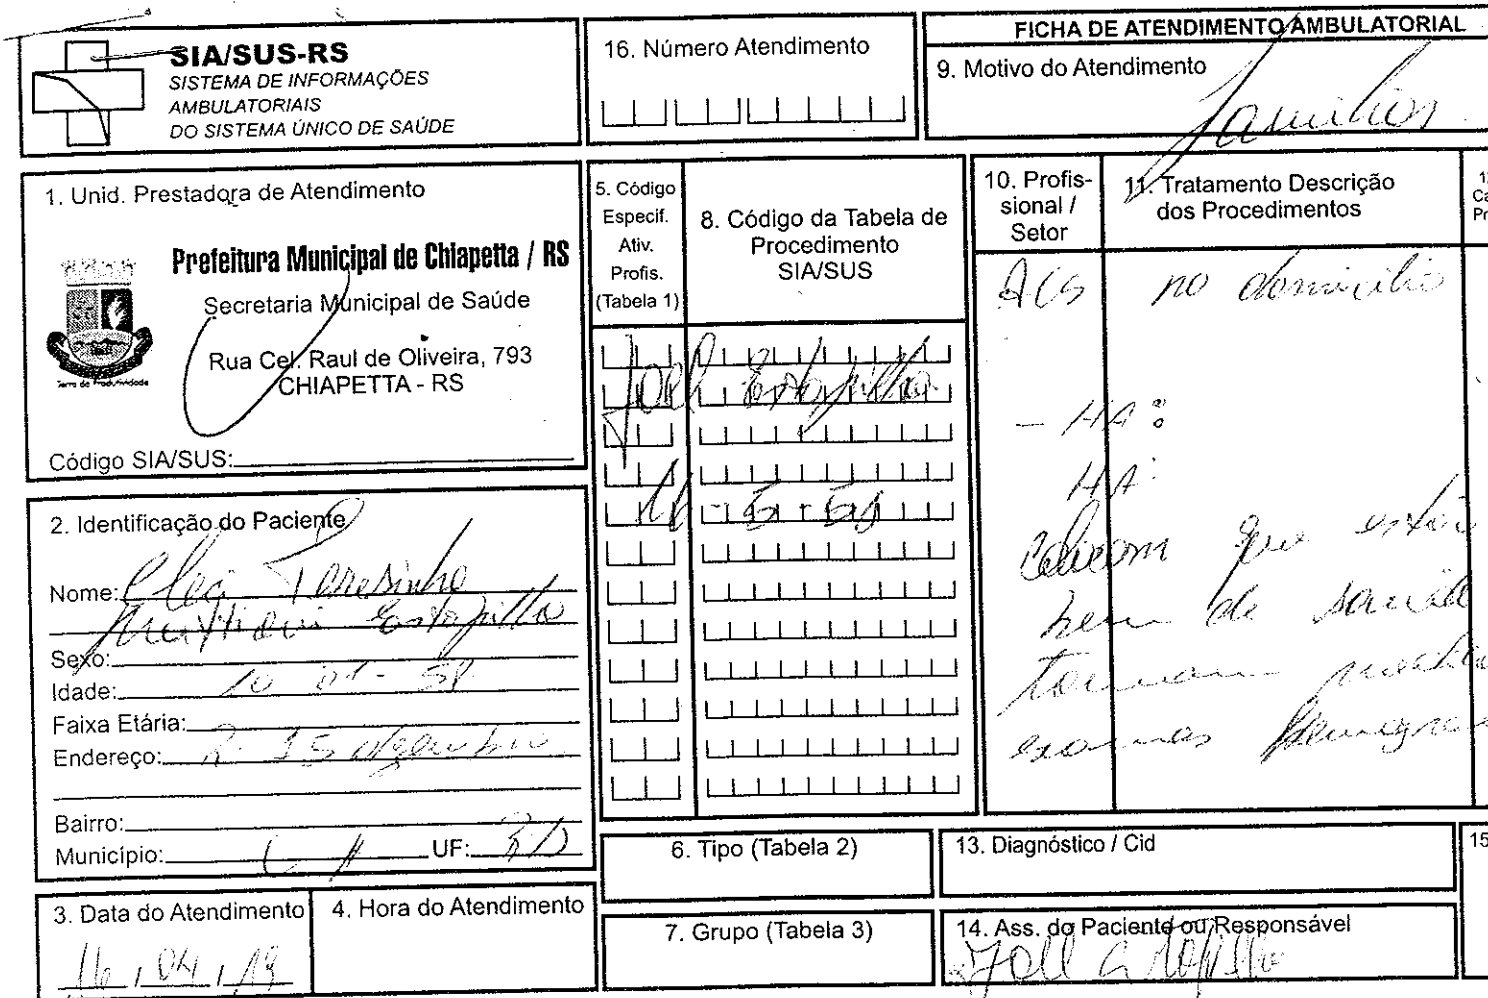 SIA/SUS-RS
SISTEMA DE INFORMAÇÕES
AMBULATORIAIS
DO SISTEMA ÚNICO DE SAÚDE
16. Número Atendimento
FICHA DE ATENDIMENTO AMBULATORIAL
9. Motivo do Atendimento
1. Unid. Prestadora de Atendimento
Prefeitura Municipal de Chiapetta / RS
Secretaria Municipal de Saúde
Rua Cel. Raul de Oliveira, 793
CHIAPETTA - RS
Terra da Produtividade
Código SIA/SUS:
5. Código
Especif.
Ativ.
Profis.
(Tabela 1)
8. Código da Tabela de
Procedimento
SIA/SUS
Joel Estapilha
10. Profis-
sional /
Setor
11. Tratamento Descrição
dos Procedimentos
ACS no domicilio
- HA:
HA:
que
bem de saúde
tomam
exames
2. Identificação do Paciente
Nome: Estapilha
Sexo:
Idade:
Faixa Etária:
Endereço: R. 15 dezembro
Bairro:
Município: CH UF: RS
3. Data do Atendimento
16, 04, 19
4. Hora do Atendimento
6. Tipo (Tabela 2)
7. Grupo (Tabela 3)
13. Diagnóstico / Cid
14. Ass. do Paciente ou Responsável
Joel Estapilha